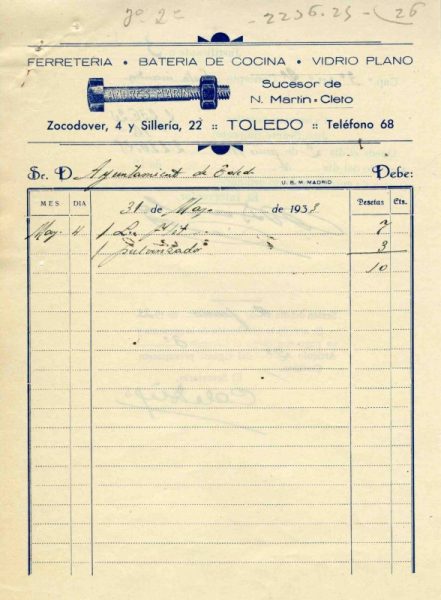 3º 2º - 2256.25 - 26
FERRETERIA • BATERIA DE COCINA • VIDRIO PLANO
ANDRES MARIN
Sucesor de
N. Martin-Cleto
Zocodover, 4 y Sillería, 22 :: TOLEDO :: Teléfono 68
Sr. D. Ayuntamiento de Toledo Debe:
U. B. M. MADRID
MES DIA 31 de Mayo de 1933 Pesetas Cts.
Mayo 4 1 L. Flit 7
1 pulverizador 3
10